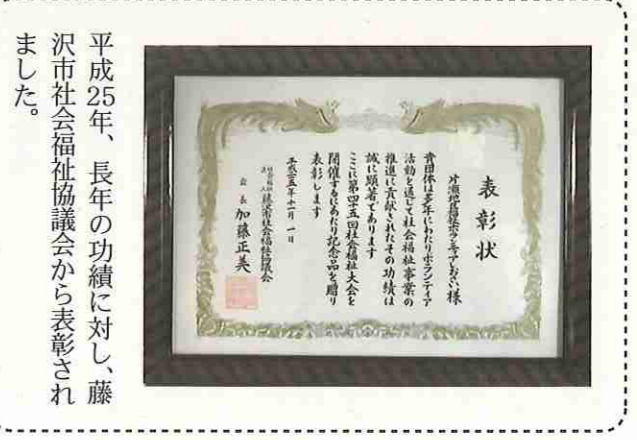 表彰状
片瀬地区福祉ボランティアおあい様
貴団体は多年にわたりボランティア
活動を通じて社会福祉事業の
推進に貢献されたその功績は
誠に顕著であります
ここに第四十五回社会福祉大会を
開催するにあたり記念品を贈り
表彰します
平成二十五年十一月一日
社会福祉法人 藤沢市社会福祉協議会
会長 加藤正美
平成25年、長年の功績に対し、藤
沢市社会福祉協議会から表彰され
ました。